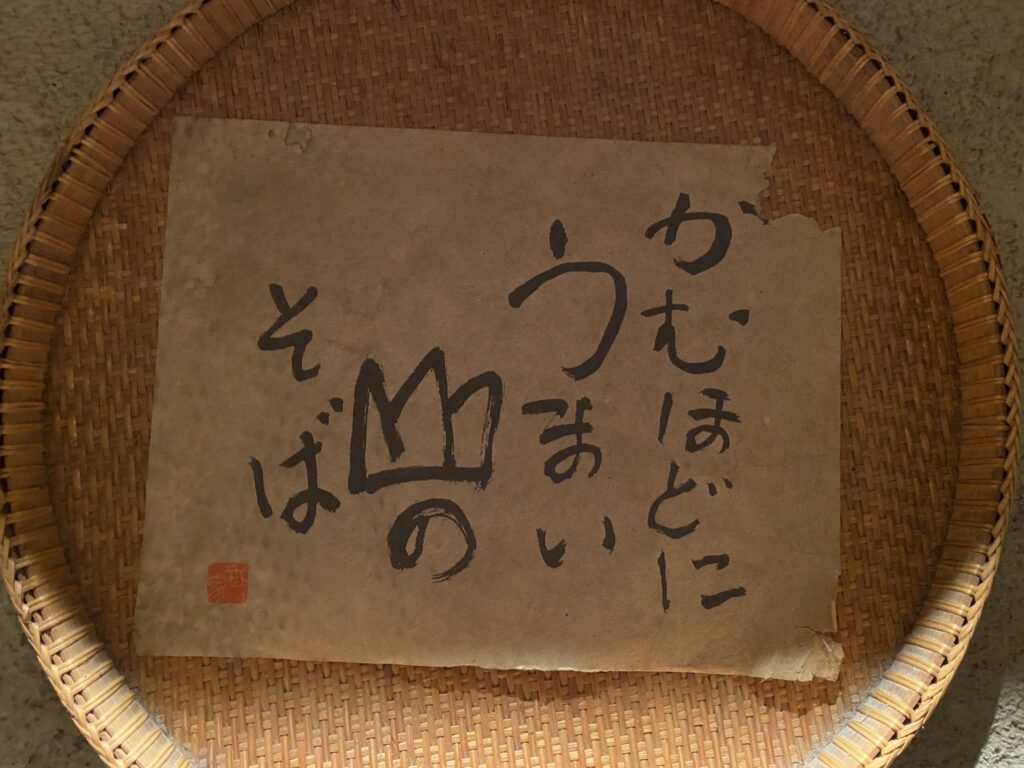 かむほどに
うまい
山の
そば